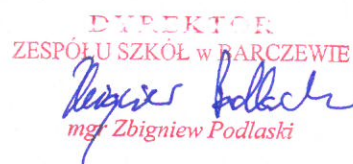 DYREKTOR
ZESPÓŁU SZKÓŁ w BARCZEWIE
Zbigniew Podlaski
mgr Zbigniew Podlaski